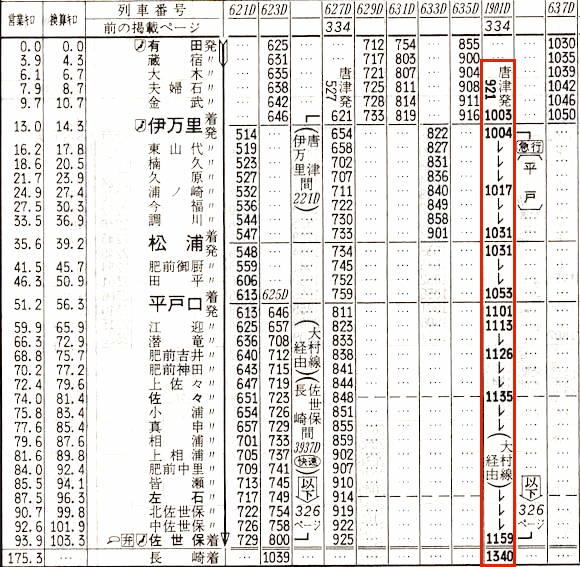 営業キロ 換算キロ 列車番号 621D 623D 627D 629D 631D 633D 635D 1901D 637D
前の掲載ページ 334 334
0.0 0.0 有田発 … 625 唐津発 527 712 754 … 855 唐津発 921 1030
3.9 4.3 蔵宿〃 … 631 717 803 … 900 1035
6.1 6.7 大木〃 … 635 721 807 … 904 1039
7.9 8.7 夫婦石〃 … 638 725 811 … 908 1042
9.7 10.7 金武〃 … 642 728 814 … 911 1045
13.0 14.3 伊万里着 … 646 621 733 819 … 916 1003 1050
発 514 唐津伊万里間 221D 654 … … 822 … 1004 急行 平戸 …
16.2 17.8 東山代〃 519 658 … … 827 … ↓ …
18.6 20.5 楠久〃 523 702 … … 831 … ↓ …
21.7 23.9 久原〃 527 707 … … 836 … ↓ …
24.9 27.4 浦ノ崎〃 532 711 … … 840 … 1017 …
27.5 30.3 今福〃 536 722 … … 849 … ↓ …
33.5 36.9 調川〃 544 730 … … 858 … ↓ …
35.6 39.2 松浦着 547 733 … … 901 … 1031 …
発 548 … 734 … … … … 1031 …
41.5 45.7 肥前御厨〃 559 … 745 … … … … ↓ …
46.3 50.9 田平〃 606 … 752 … … … … ↓ …
51.2 56.3 平戸口着 613 625D 759 … … … … 1053 …
発 613 646 811 … … … … 1101 …
59.9 65.9 江迎〃 625 657 大村線経由 佐世保長崎間 3937D 快速 823 … … … … 1113 …
66.3 72.9 潜竜〃 636 708 833 … … … … ↓ …
68.8 75.7 肥前吉井〃 640 712 838 … … … … 1126 …
70.2 77.2 肥前神田〃 643 715 841 … … … … ↓ …
72.4 79.6 上佐々〃 647 719 844 … … … … ↓ …
74.0 81.4 佐々〃 651 723 848 … … … … 1135 …
75.8 83.4 小浦〃 654 726 851 … … … … ↓ …
77.6 85.4 真申〃 657 729 855 … … … … ↓ …
79.6 87.6 相浦〃 701 733 859 … … … … 大村線経由 …
81.6 89.8 上相浦〃 705 737 902 … … … … …
84.0 92.4 肥前中里〃 709 741 907 … … … … …
85.5 94.1 皆瀬〃 713 745 以下326ページ 910 … … … … 以下326ページ
87.5 96.3 左石〃 717 749 914 … … … … ↓
90.7 99.8 北佐世保〃 722 754 919 … … … … ↓
92.6 101.9 中佐世保〃 726 758 922 … … … … ↓
93.9 103.3 弁 佐世保着 729 800 925 … … … … 1159
175.3 … 長崎着 … 1039 … … … … … 1340 …